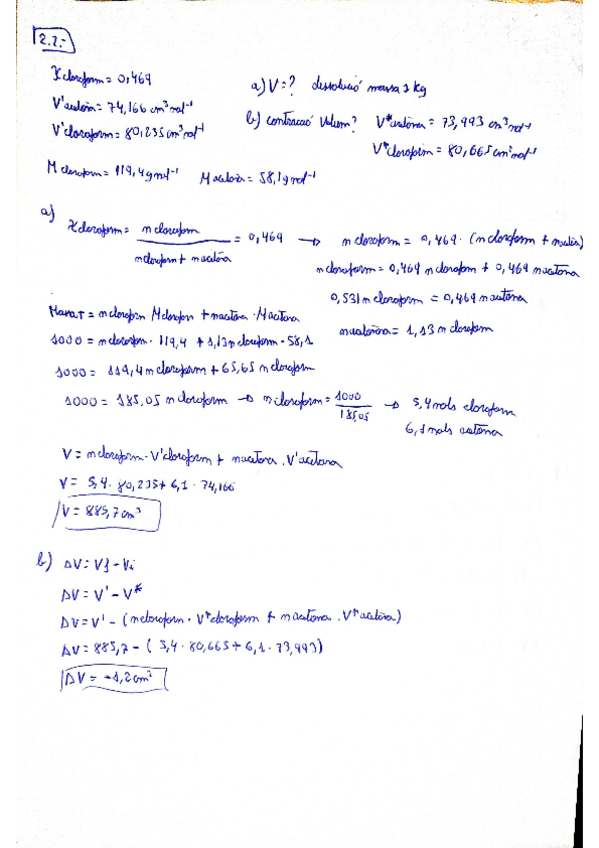 2.2.-
Xcloroform = 0,469
a) V=? dissolució massa 1 kg
V'acetona = 74,166 cm³mol⁻¹
b) contracció Volum? V*acetona = 73,993 cm³mol⁻¹
V'cloroform = 80,235 cm³mol⁻¹
V*cloroform = 80,665 cm³mol⁻¹
Mcloroform = 119,4 g mol⁻¹ Macetona = 58,1 g mol⁻¹
a)
Xcloroform = ncloroform / ncloroform + nacetona = 0,469 → ncloroform = 0,469 · (ncloroform + nacetona)
ncloroform = 0,469 ncloroform + 0,469 nacetona
0,531 ncloroform = 0,469 nacetona
MassaT = ncloroform · Mcloroform + nacetona · Macetona
nacetona = 1,13 ncloroform
1000 = ncloroform · 119,4 + 1,13 ncloroform · 58,1
1000 = 119,4 ncloroform + 65,65 ncloroform
1000 = 185,05 ncloroform → ncloroform = 1000 / 185,05 → 5,4 mols cloroform
6,1 mols acetona
V = ncloroform · V'cloroform + nacetona · V'acetona
V = 5,4 · 80,235 + 6,1 · 74,166
V = 885,7 cm³
b) ΔV = Vf - Vi
ΔV = V' - V*
ΔV = V' - (ncloroform · V*cloroform + nacetona · V*acetona)
ΔV = 885,7 - ( 5,4 · 80,665 + 6,1 · 73,993)
ΔV = -1,2 cm³